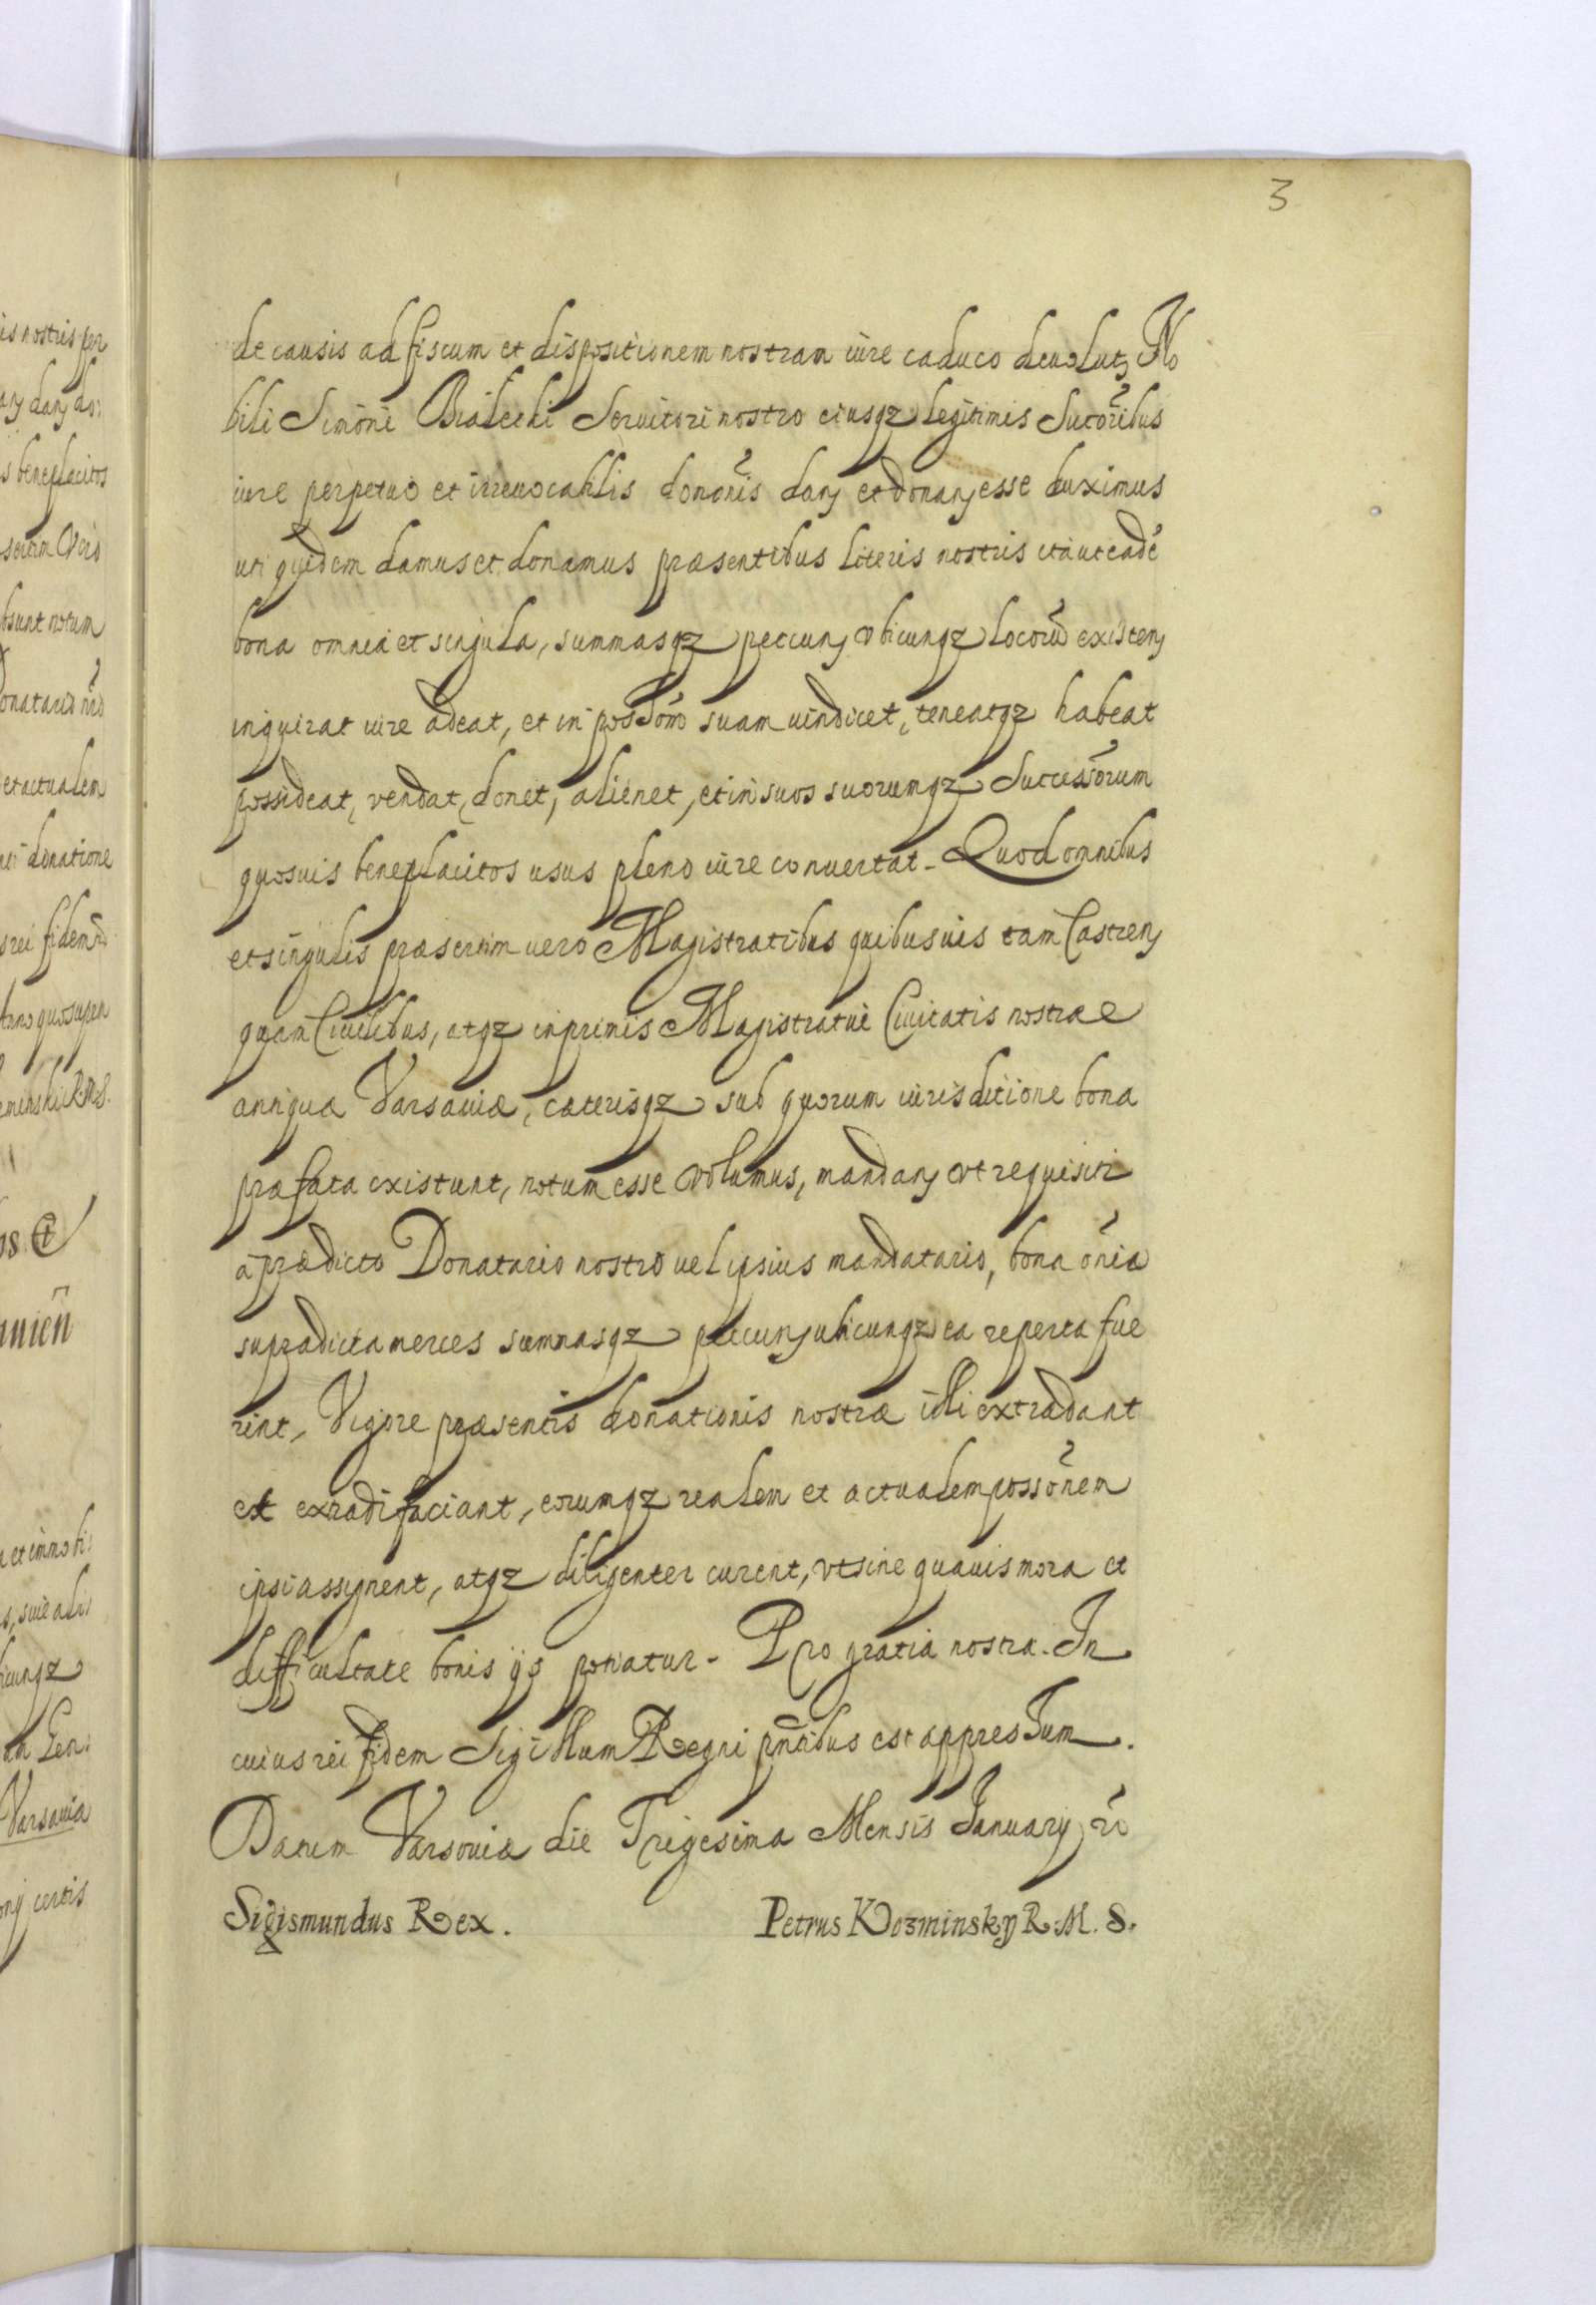 3
de causis ad fiscum et dispositionem nostram iure caduco deuolut, No
bili Simoni Białecki Seruitori nostro eiusqz legitimis Sucōribus
iure perpetuo et irreuocablis donōnis dan et donan esse duximus
uti quidem damus et donamus præsentibus literis nostris ita ut eadē
bona omnia et singula, summasqz peccun vbicunqz locorū existen
inquirat iure adeat, et in possōm̄ suam uindicet, teneatqz habeat
possideat, vendat, donet, alienet, et in suos suorumqz Successorum
quosuis beneplacitos usus pleno iure conuertat. Quod omnibus
et singulis præsertim uero Magistratibus quibusuis tam Castren
quam Ciuilibus, atqz inprimis Magistratui Ciuitatis nostræ
antiqua Varsauiæ, cæterisqz sub quorum iurisditione bona
præfata existunt, notum esse volumus, mandan vt requisiti
a prædicto Donatario nostro uel ipsius mandatario, bona ōnia
supradicta merces summasqz peccun ubicunqz ea reperta fue
rint, Vigore præsentis donationis nostræ illi extradant
et exradi faciant, eorumqz realem et actualem possōnem
ipsi assignent, atqz diligenter curent, vt sine quauis mora et
difficultate bonis ijs potiatur. Pro gratia nostra. In
cuius rei fidem Sigillum Regni pñtibus est appressum.
Datum Varsouiæ die Trigesima Mensis January
Sigismundus Rex. Petrus Kozminsky R. M. S.